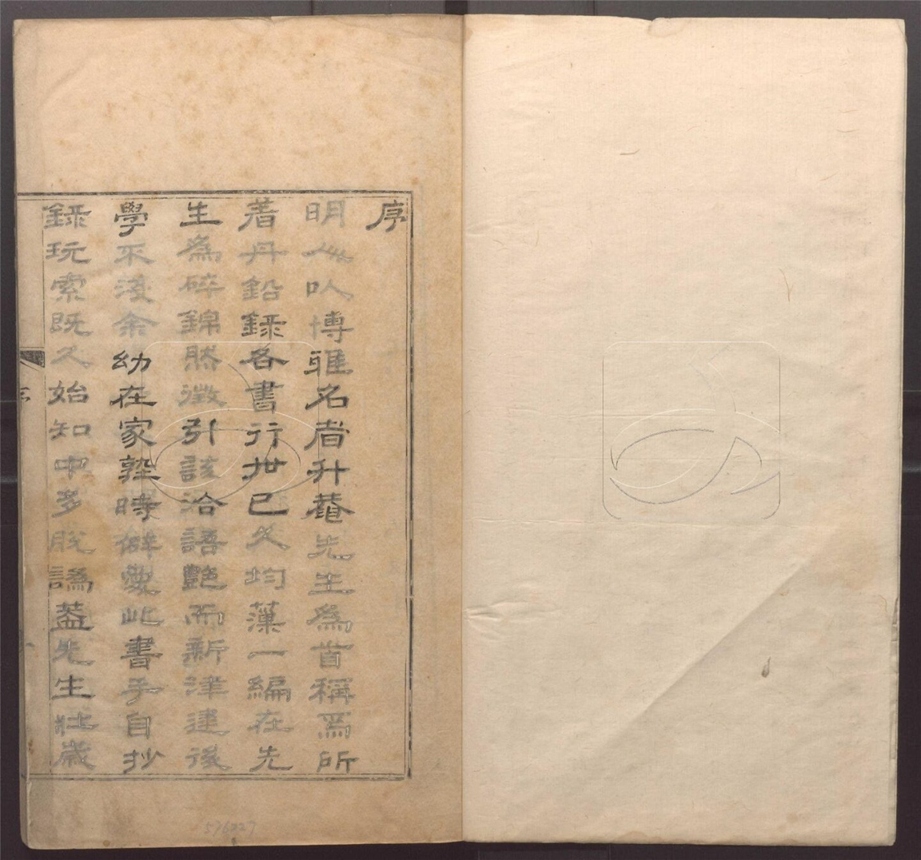 序
明人以博雅名者升菴先生為首稱焉所
著丹鉛錄各書行世已久均藻一編在先
生為碎錦然徵引該洽語艷而新津逮後
學不淺余幼在家塾時癖愛此書手自抄
錄玩索既久始知中多脫譌葢先生壯歲